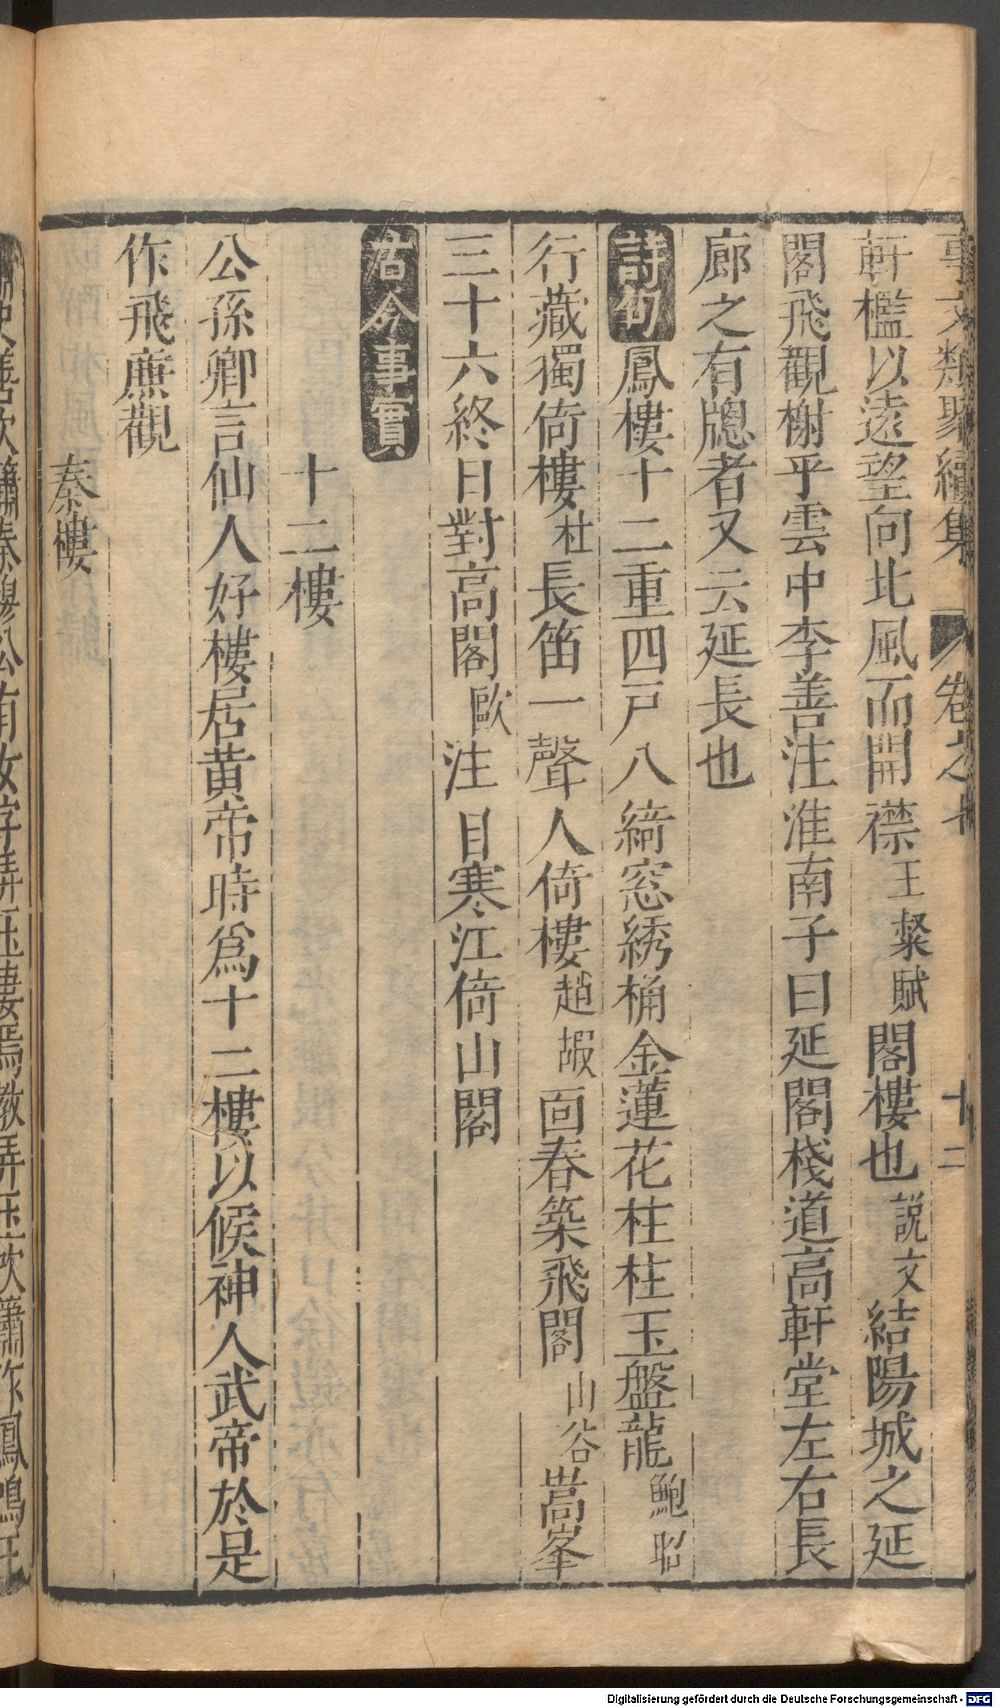 事文類聚續集　卷之七　十二
軒檻以遠望向北風而開襟王粲賦閣樓也說文結陽城之延
閣飛觀榭乎雲中李善注淮南子曰延閣棧道高軒堂左右長
廊之有牎者又云延長也
詩句鳳樓十二重四戸八綺窓綉桷金蓮花柱柱玉盤龍鮑昭
行藏獨倚樓杜長笛一聲人倚樓趙嘏囬春築飛閣山谷嵩峯
三十六終日對高閣歐注目寒江倚山閣
古今事實
十二樓
公孫卿言仙人好樓居黄帝時爲十二樓以候神人武帝於是
作飛廉觀
秦樓
吹簫秦穆公有女字弄玉妻焉教弄玉吹簫作鳳鳴
Digitalisierung gefördert durch die Deutsche Forschungsgemeinschaft - DFG